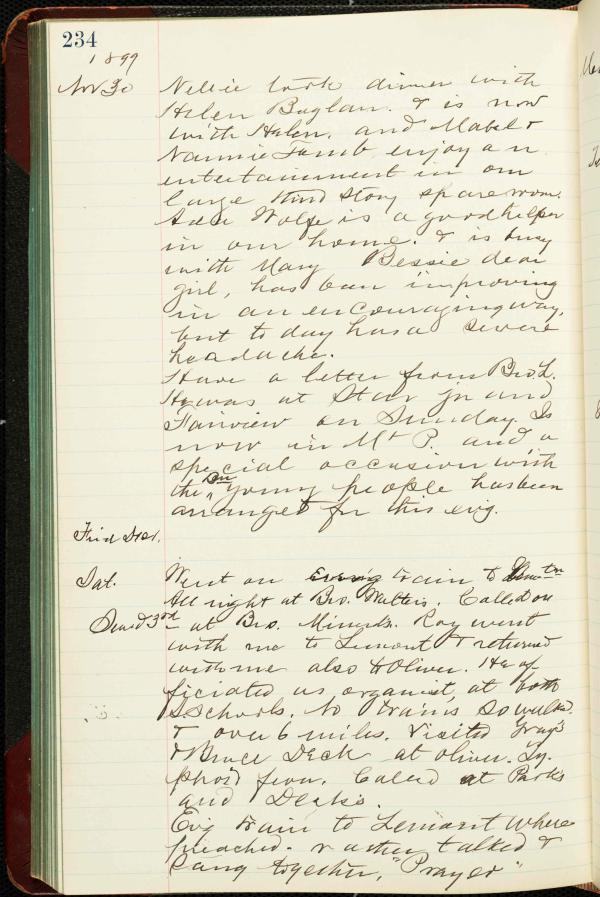 234
1899
Nov 30 Nellie took dinner with
Helen Buglan. & is now
with Helen. and Mabel &
Nannie Tumb enjoy an
entertainment in our
large third story spare room.
Ada Wolfe is a good helper
in our home. & is busy
with Mary Bessie dear
girl, has been improving
in an encouraging way,
but to day has a severe
headache.
Have a letter from Bro. L.
He was at Starr jn and
Fairview on Sunday. Is
now in Mt P. and a
special occasion with
the our young people has been
arranged for this evig.
Frid Dec 1.
Sat. Went on Evenig train to
All right at Bro. Walters. Called on
Sund 3rd at Bro. Minerds. Roy went
with me to Lemont & returned
with me also to Oliver. He of
ficiated as organist at both
S Schools. No trains so walked
& over 6 miles. Visited Gray's
& Bruce Deck at Oliver. Ty.
phoid fever. Called at Parks
and Deaks.
Evig train to Lemont where
preached. & after talked &
Sang together, "Prayer"